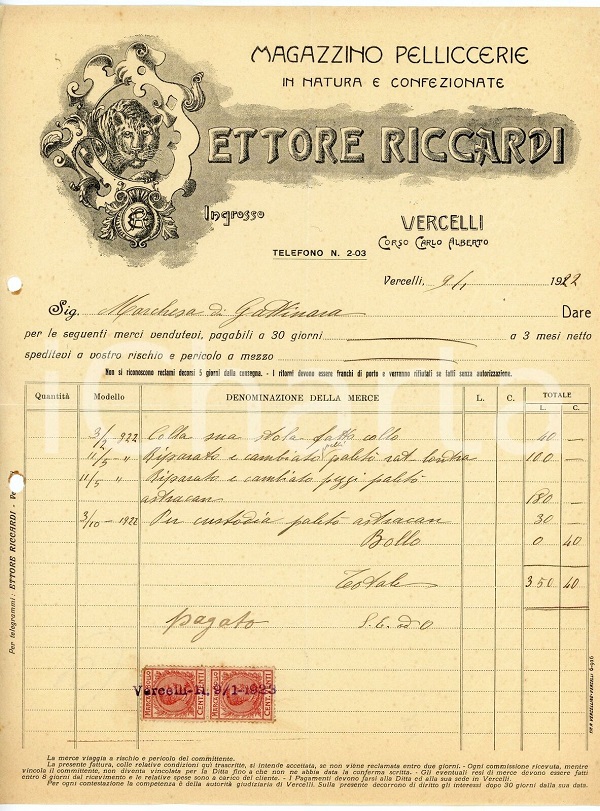 MAGAZZINO PELLICCERIE
IN NATURA E CONFEZIONATE
ETTORE RICCARDI
Ingrosso
VERCELLI
CORSO CARLO ALBERTO
TELEFONO N. 2-03
Vercelli, 9/1 1922
Sig. Marchesa di Gattinara Dare
per le seguenti merci vendutevi, pagabili a 30 giorni a 3 mesi netto
speditevi a vostro rischio e pericolo a mezzo
Non si riconoscono reclami decorsi 5 giorni dalla consegna. - I ritorni devono essere franchi di porto e verranno rifiutati se fatti senza autorizzazione.
Quantità Modello DENOMINAZIONE DELLA MERCE L. C. TOTALE
L. C.
3/2 922 Colla sua stola fatto collo 40 —
11/5 " Riparato e cambiato pelli paletò rat londra 100 —
11/5 " Riparato e cambiato pezzi paletò
astracan 180 —
3/10 - 1922 Per custodia paletò astracan 30 —
Bollo 0 40
Totale 350 40
pagato S. E. ad O
MARCA DA BOLLO CENTESIMI
Vercelli-li. 9/1-1923
Per telegrammi: ETTORE RICCARDI - Vercelli
La merce viaggia a rischio e pericolo del committente.
La presente fattura, colle relative condizioni quì trascritte, si intende accettata, se non viene reclamata entro due giorni. - Ogni commissione ricevuta, mentre
vincola il committente, non diventa vincolata per la Ditta fino a che non ne abbia data la conferma scritta. - Gli eventuali resi di merce devono essere fatti
entro 8 giorni dal ricevimento e le relative spese sono a carico del cliente. - I Pagamenti devono farsi alla Ditta ed alla sua sede in Vercelli.
Per ogni contestazione la competenza è della autorità giudiziaria di Vercelli. Sulla presente decorrono di diritto gli interessi dopo 30 giorni dalla sua data.